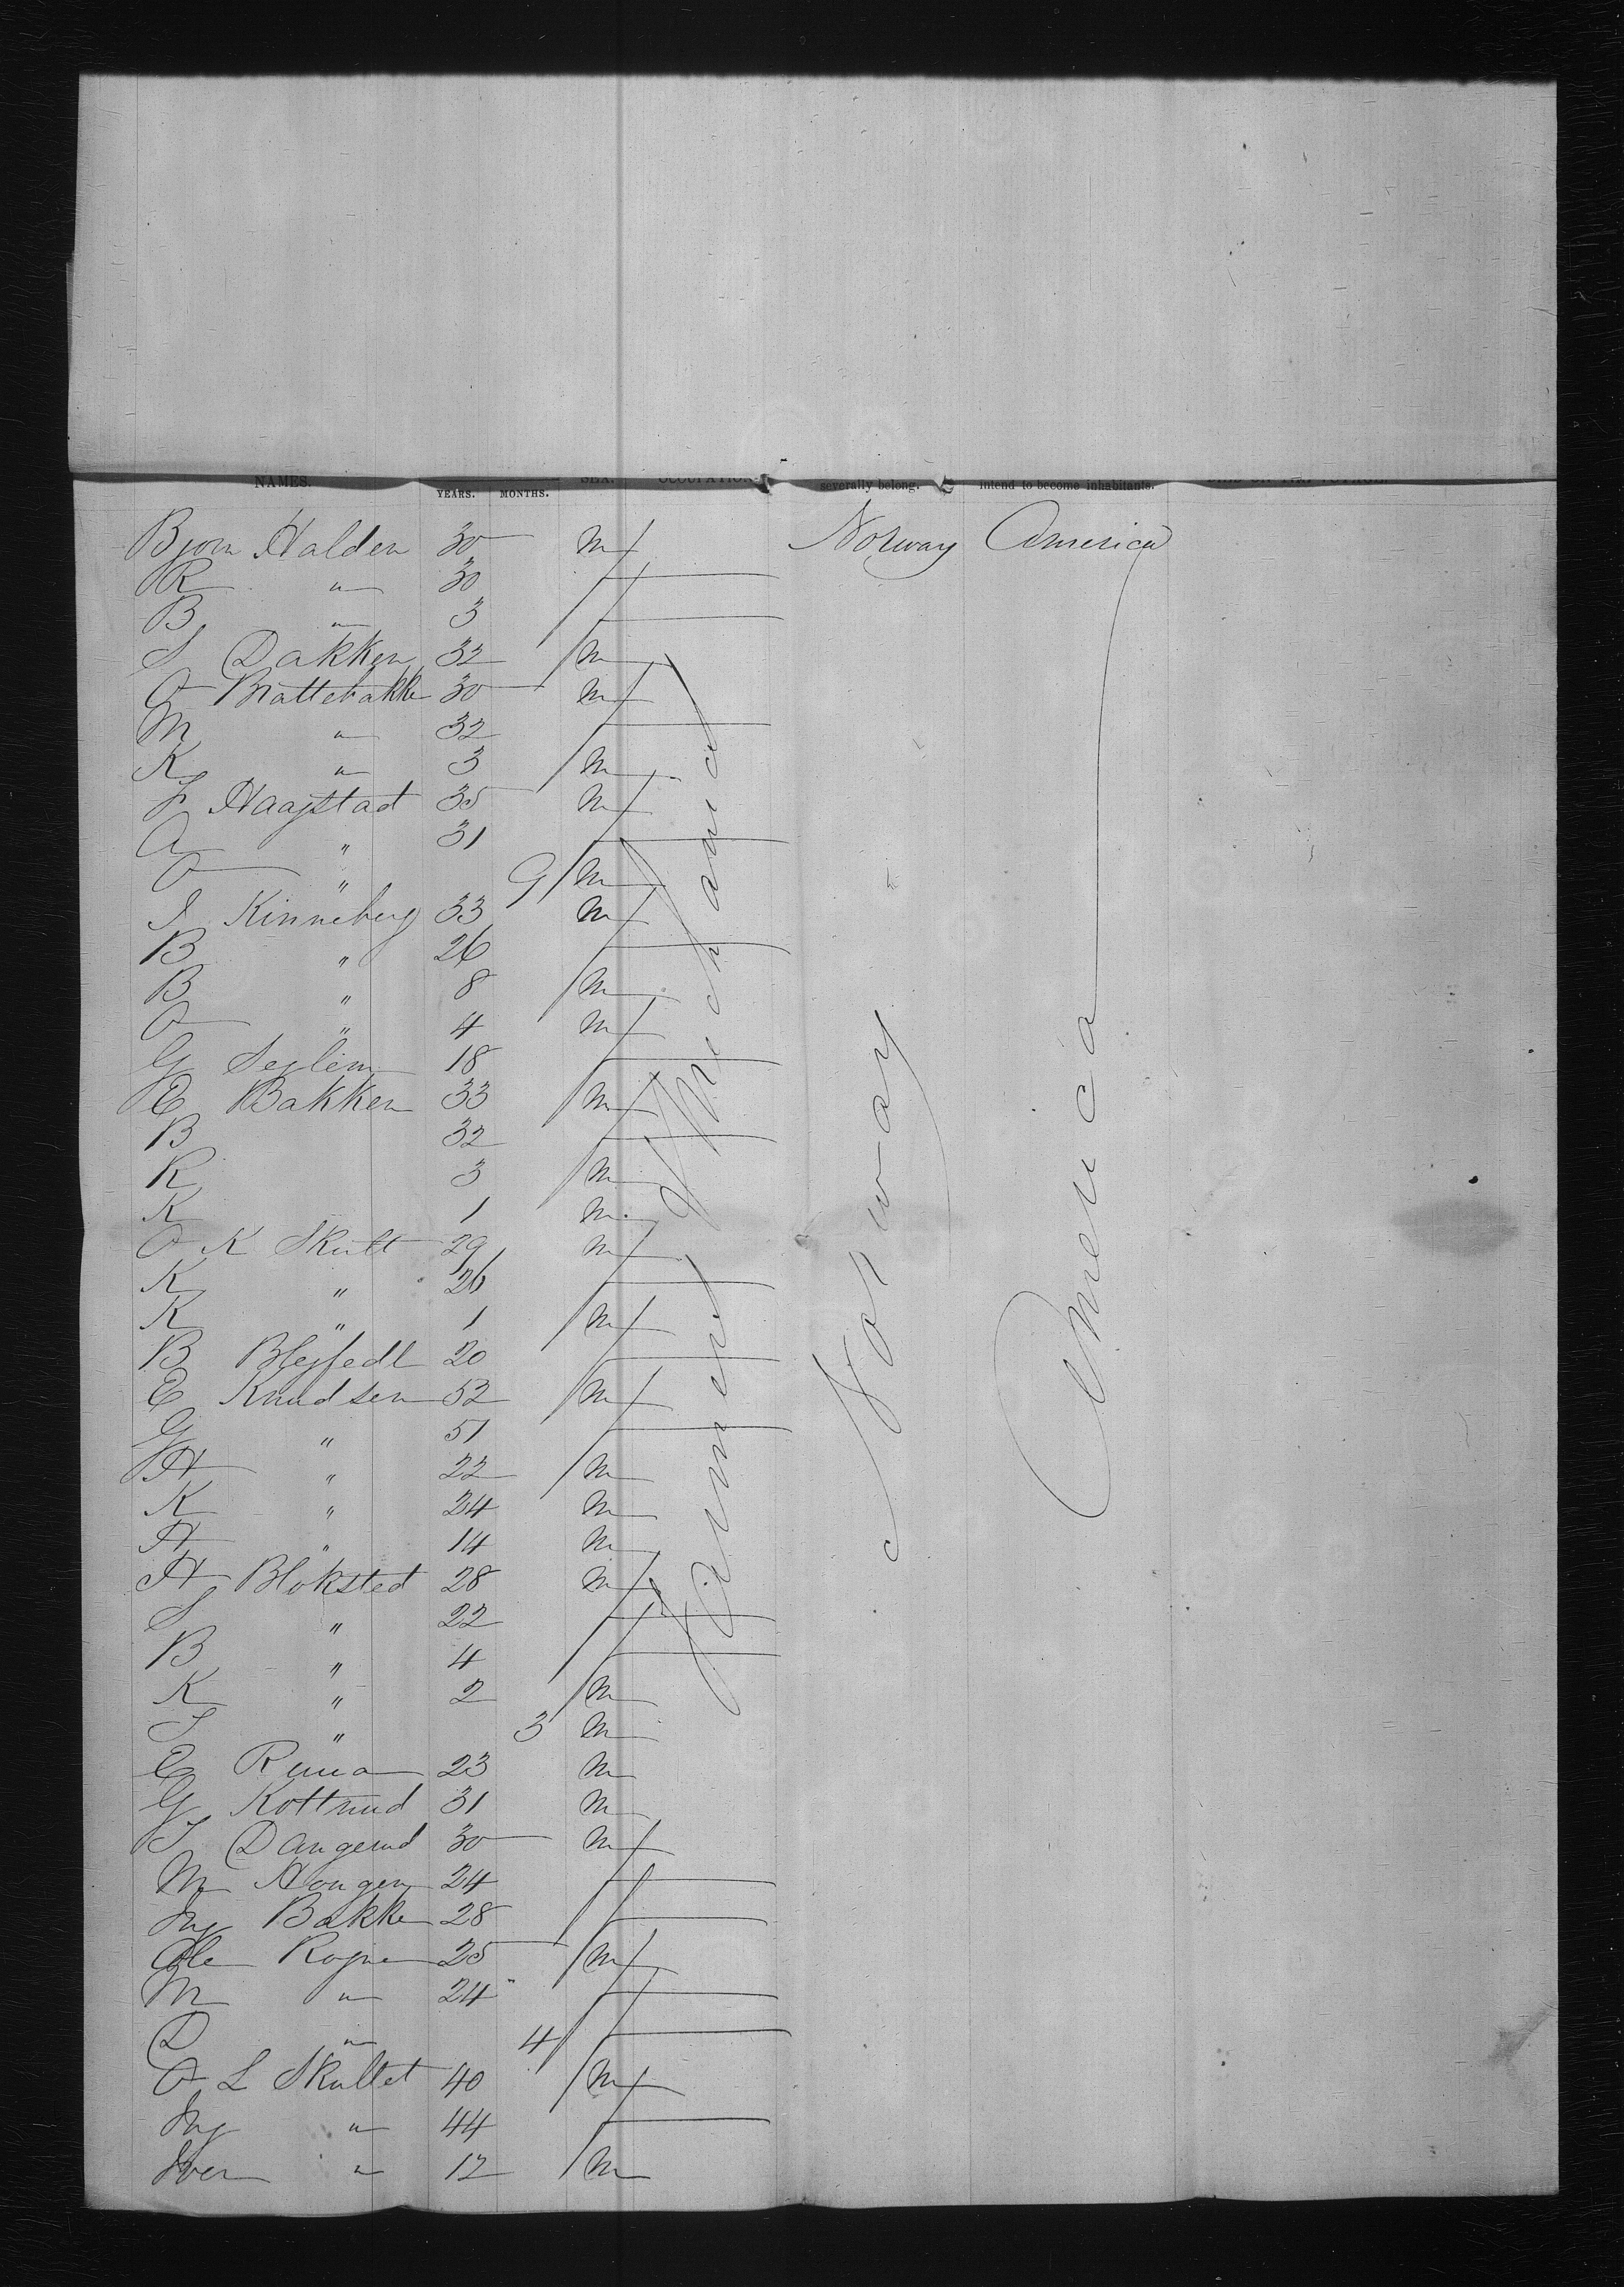 NAMES. YEARS. MONTHS. SEX. OCCUPATION severally belong. intend to become inhabitants.
Bjorn Halden 30 m Norway America
R " 30
B " 3
S Dakken 32 m
O Brattebakke 30 m
M " 32
K " 3 m
F Haagstad 35 m
A " 31
O " 9 m
I Kinneberg 33 m
B " 26
B " 8 m
O " 4 m
G Seglem 18
E Bakken 33 m
B 32
R 3 m
K 1 m
O K Skult 29 m
K " 26
K " 1 m
B 20
E Knudsen 52 m
G " 51
H " 22 m
K " 24 m
H " 14 m
H Bloksted 28 m
S " 22
B " 4
K " 2 m
S " 3 m
E 23 m
G Kottrud 31 m
T Dangerud 30 m
M Hougen 24
Ing Bakke 28
Ole Rogne 25 m
M " 24
D " 4
O L Skultet 40 m
Ing " 44
Iver " 12 m
Farmers & Mechanics
Norway
America